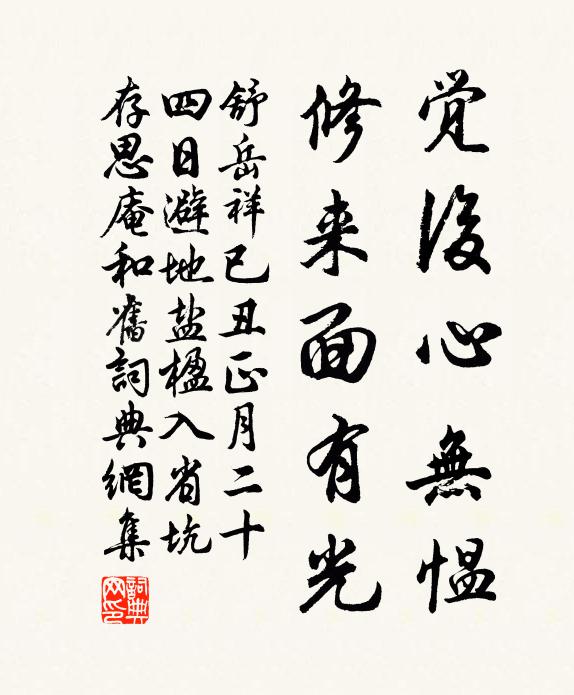 觉後心無愠
修来面有光
舒岳祥己丑正月二十
四日避地盐楹入省坑
存思庵和舊詞典網集
詞典網印